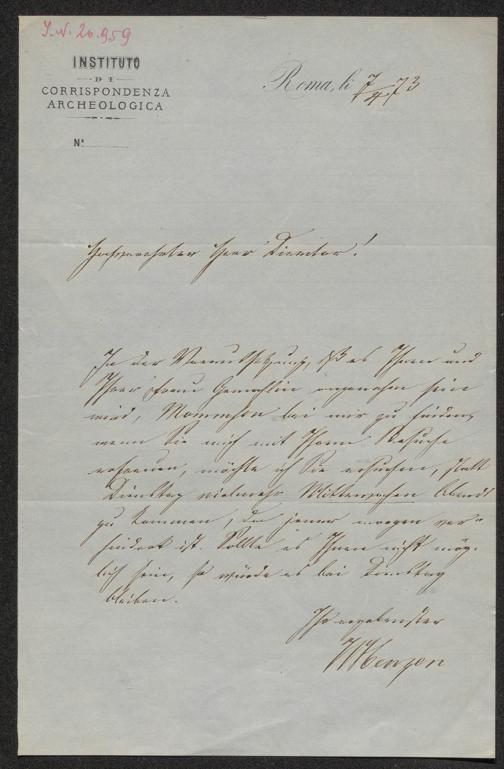 I.N. 20.959
INSTITUTO
DI
CORRISPONDENZA
ARCHEOLOGICA
Nº
Roma, li 7/4 73
Hochverehrter Herr Director!
In der Voraussetzung, daß es Ihnen und
Ihrer Frau Gemahlin angenehm sein
wird, Mommsen bei mir zu finden,
wenn Sie mich mit Ihrem Besuche
erfreuen, möchte ich Sie ersuchen, statt
Dienstag vielmehr Mittwochen Abend
zu kommen, da jener morgen ver-
hindert ist. Sollte es Ihnen nicht mög-
lich sein, so würde es bei Dienstag
bleiben.
Ihr ergebenster
WHenzen